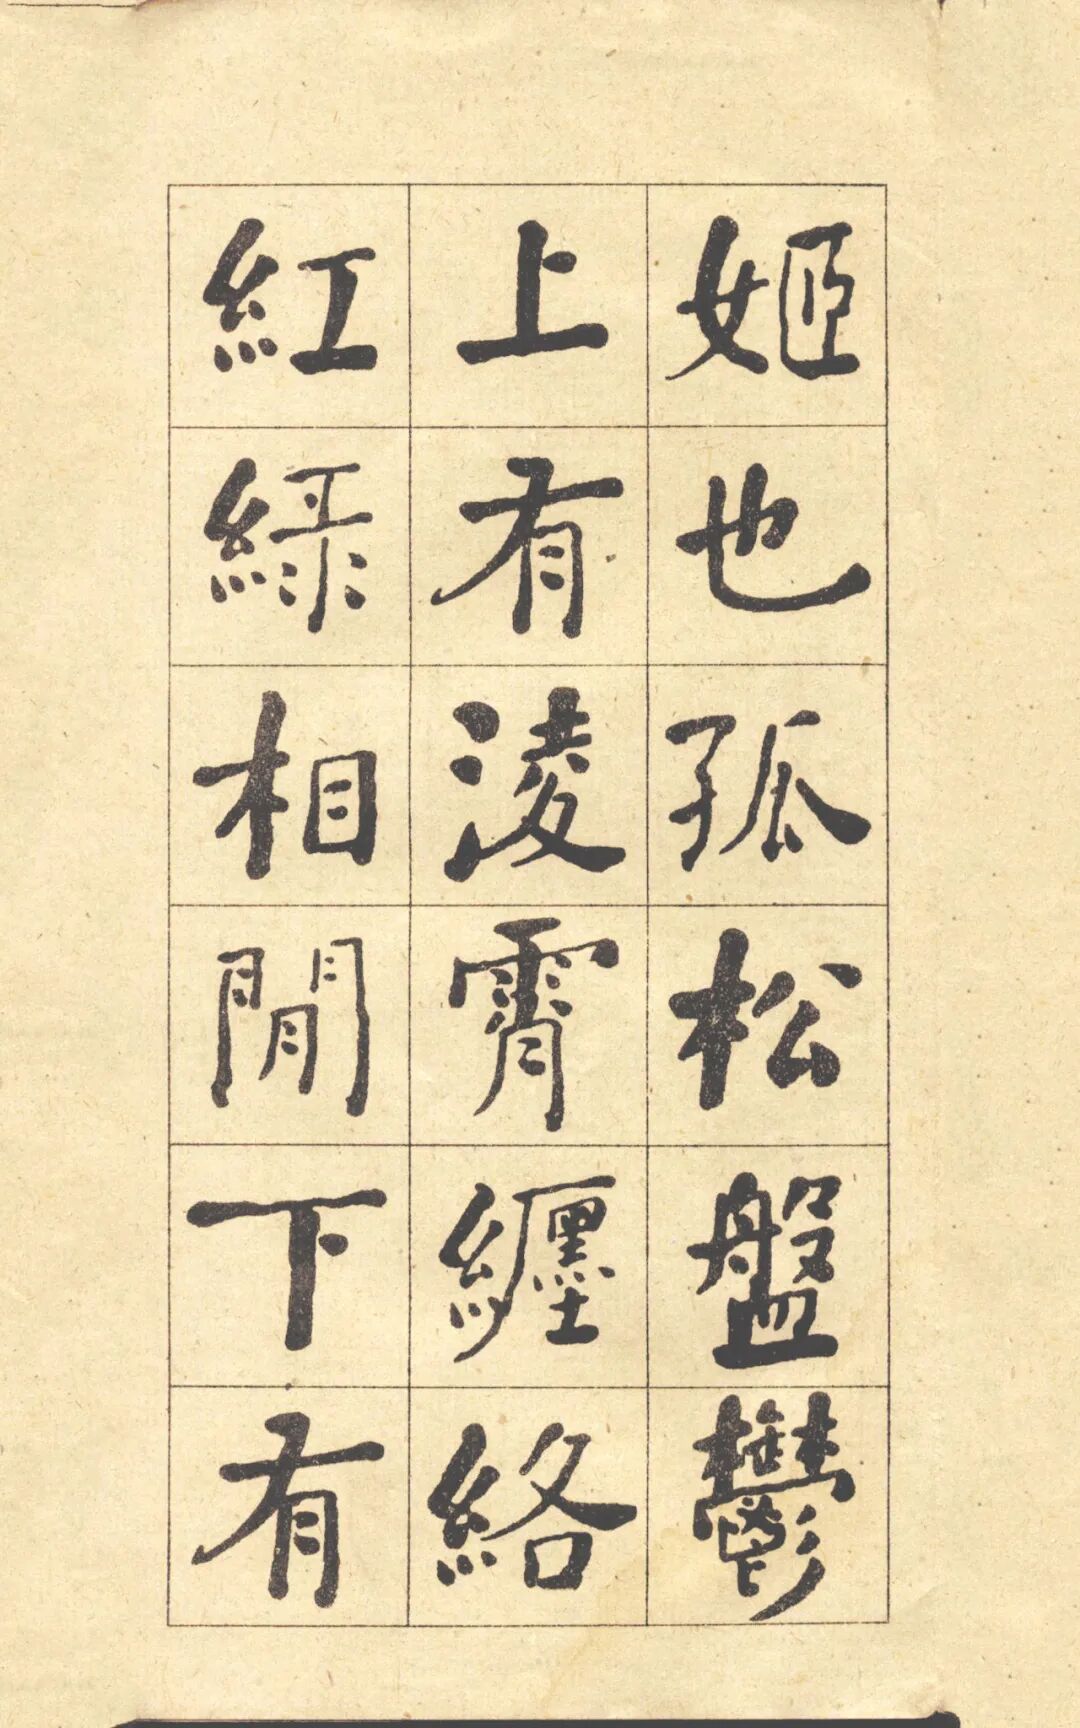 姬也孤松盤鬱
上有淩霄纏絡
紅綠相間下有